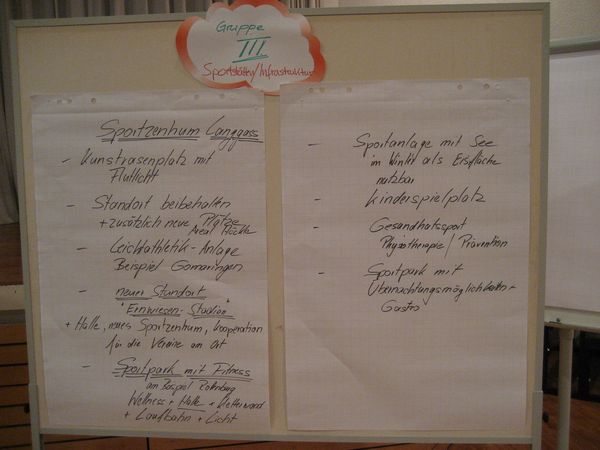 Gruppe
III
Sportstätten/Infrastruktur
Sportzentrum Langgass
- Kunstrasenplatz mit
Flutlicht
- Standort beibehalten
+ zusätzlich neue Plätze
Areal
- Leichtathletik-Anlage
Beispiel Gomaringen
- neuer Standort
"Ernwiesen-Stadion"
+ Halle, neues Sportzentrum, Kooperation
für die Vereine am Ort
- Sportpark mit Fitness
am Beispiel Rottenburg
Wellness + Halle + Kletterwand
+ Laufbahn + Licht
- Sportanlage mit See
im Winter als Eisfläche
nutzbar
- Kinderspielplatz
- Gesundheitssport
Physiotherapie / Prävention
- Sportpark mit
Übernachtungsmöglichkeiten +
Gastro